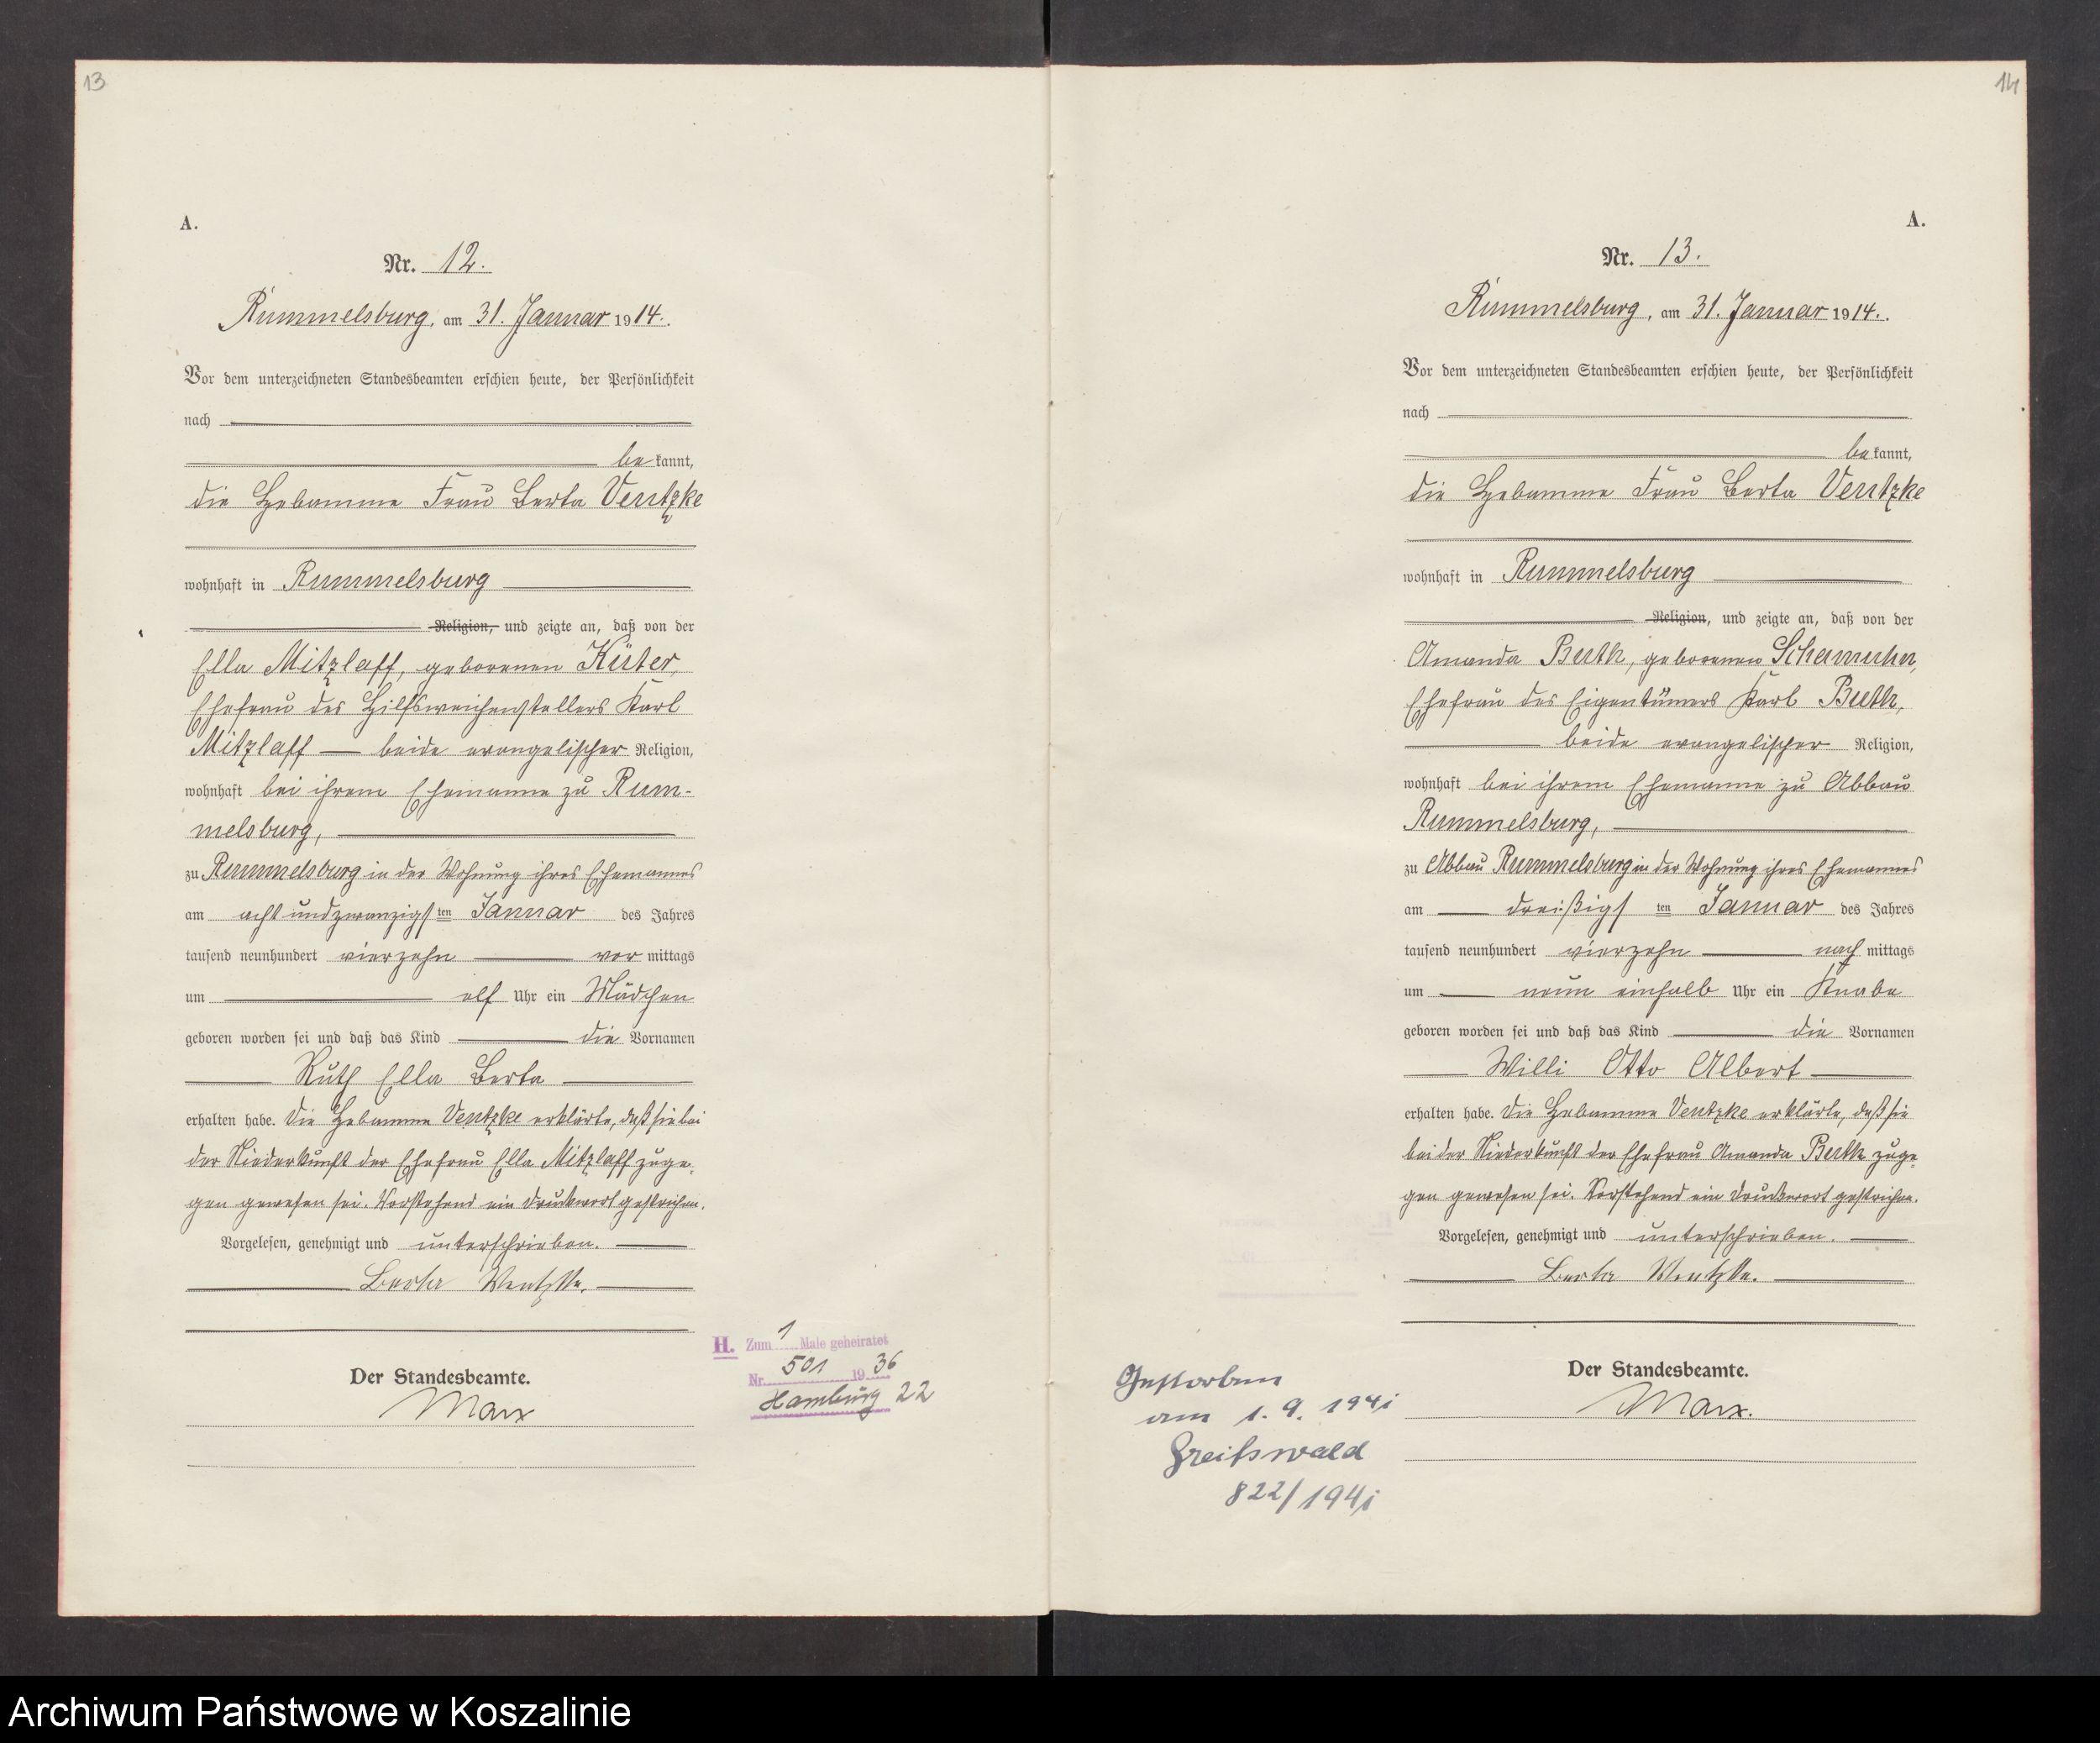 13
A.
Nr. 12.
Rummelsburg, am 31. Januar 1914.
Vor dem unterzeichneten Standesbeamten erschien heute, der Persönlichkeit
nach
be kannt,
die Hebamme Frau Berta Ventzke
wohnhaft in Rummelsburg
Religion, und zeigte an, daß von der
Ella Mitzlaff, geborenen Küter,
Ehefrau des Hilfsweichenstellers Karl
Mitzlaff — beide evangelischer Religion,
wohnhaft bei ihrem Ehemanne zu Rum-
melsburg,
zu Rummelsburg in der Wohnung ihres Ehemannes
am acht und zwanzigsten Januar des Jahres
tausend neunhundert vierzehn vor mittags
um elf Uhr ein Mädchen
geboren worden sei und daß das Kind die Vornamen
Ruth Ella Berta
erhalten habe. Die Hebamme Ventzke erklärte, daß sie bei
der Niederkunft der Ehefrau Ella Mitzlaff zuge-
gen gewesen sei. Vorstehend ein Druckwort gestrichen.
Vorgelesen, genehmigt und unterschrieben.
Berta Ventzke.
H. Zum 1 Male geheiratet
Nr. 501 1936
Hamburg 22
Der Standesbeamte.
Marx
14
A.
Nr. 13.
Rummelsburg, am 31. Januar 1914.
Vor dem unterzeichneten Standesbeamten erschien heute, der Persönlichkeit
nach
be kannt,
die Hebamme Frau Berta Ventzke
wohnhaft in Rummelsburg
Religion, und zeigte an, daß von der
Amanda Buth, geborenen Schamuhn,
Ehefrau des Eigentümers Karl Buth,
beide evangelischer Religion,
wohnhaft bei ihrem Ehemanne zu Abbau
Rummelsburg,
zu Abbau Rummelsburg in der Wohnung ihres Ehemannes
am dreißigsten Januar des Jahres
tausend neunhundert vierzehn nach mittags
um neun einhalb Uhr ein Knabe
geboren worden sei und daß das Kind die Vornamen
Willi Otto Albert
erhalten habe. Die Hebamme Ventzke erklärte, daß sie
bei der Niederkunft der Ehefrau Amanda Buth zuge-
gen gewesen sei. Vorstehend ein Druckwort gestrichen.
Vorgelesen, genehmigt und unterschrieben.
Berta Ventzke.
Der Standesbeamte.
Marx.
Gestorben
am 1. 9. 1941
Greifswald
822/1941
Archiwum Państwowe w Koszalinie